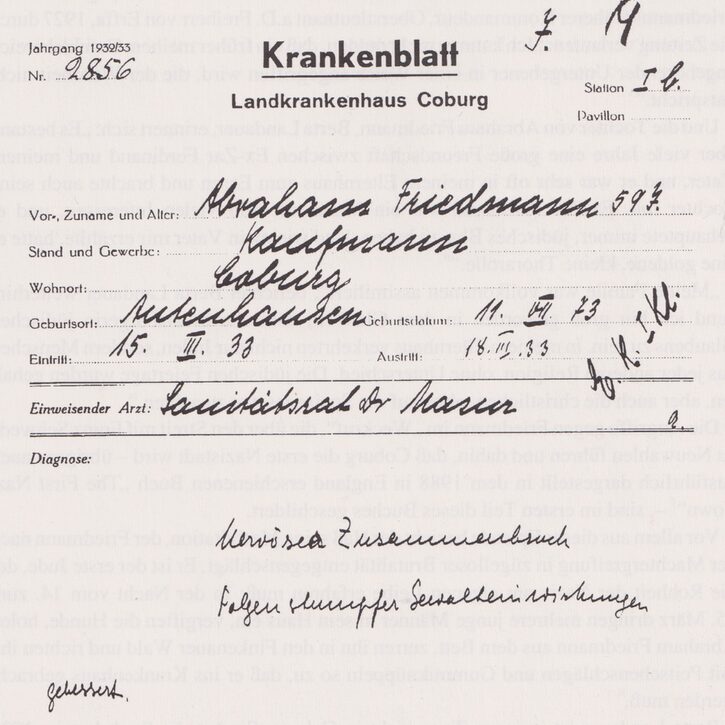 Jahrgang 1932/33
Nr. 2856
Krankenblatt
Landkrankenhaus Coburg
J. 19
Station I b.
Pavillon
Vor-, Zuname und Alter: Abraham Friedmann 59 J.
Stand und Gewerbe: Kaufmann
Wohnort: Coburg
Geburtsort: Autenhausen Geburtsdatum: 11. VII. 73
Eintritt: 15. III. 33 Austritt: 18. IV. 33
Einweisender Arzt: Sanitätsrat Dr Maser
Diagnose:
Nervöser Zusammenbruch
Folgen stumpfer Gewalteinwirkungen
gebessert.